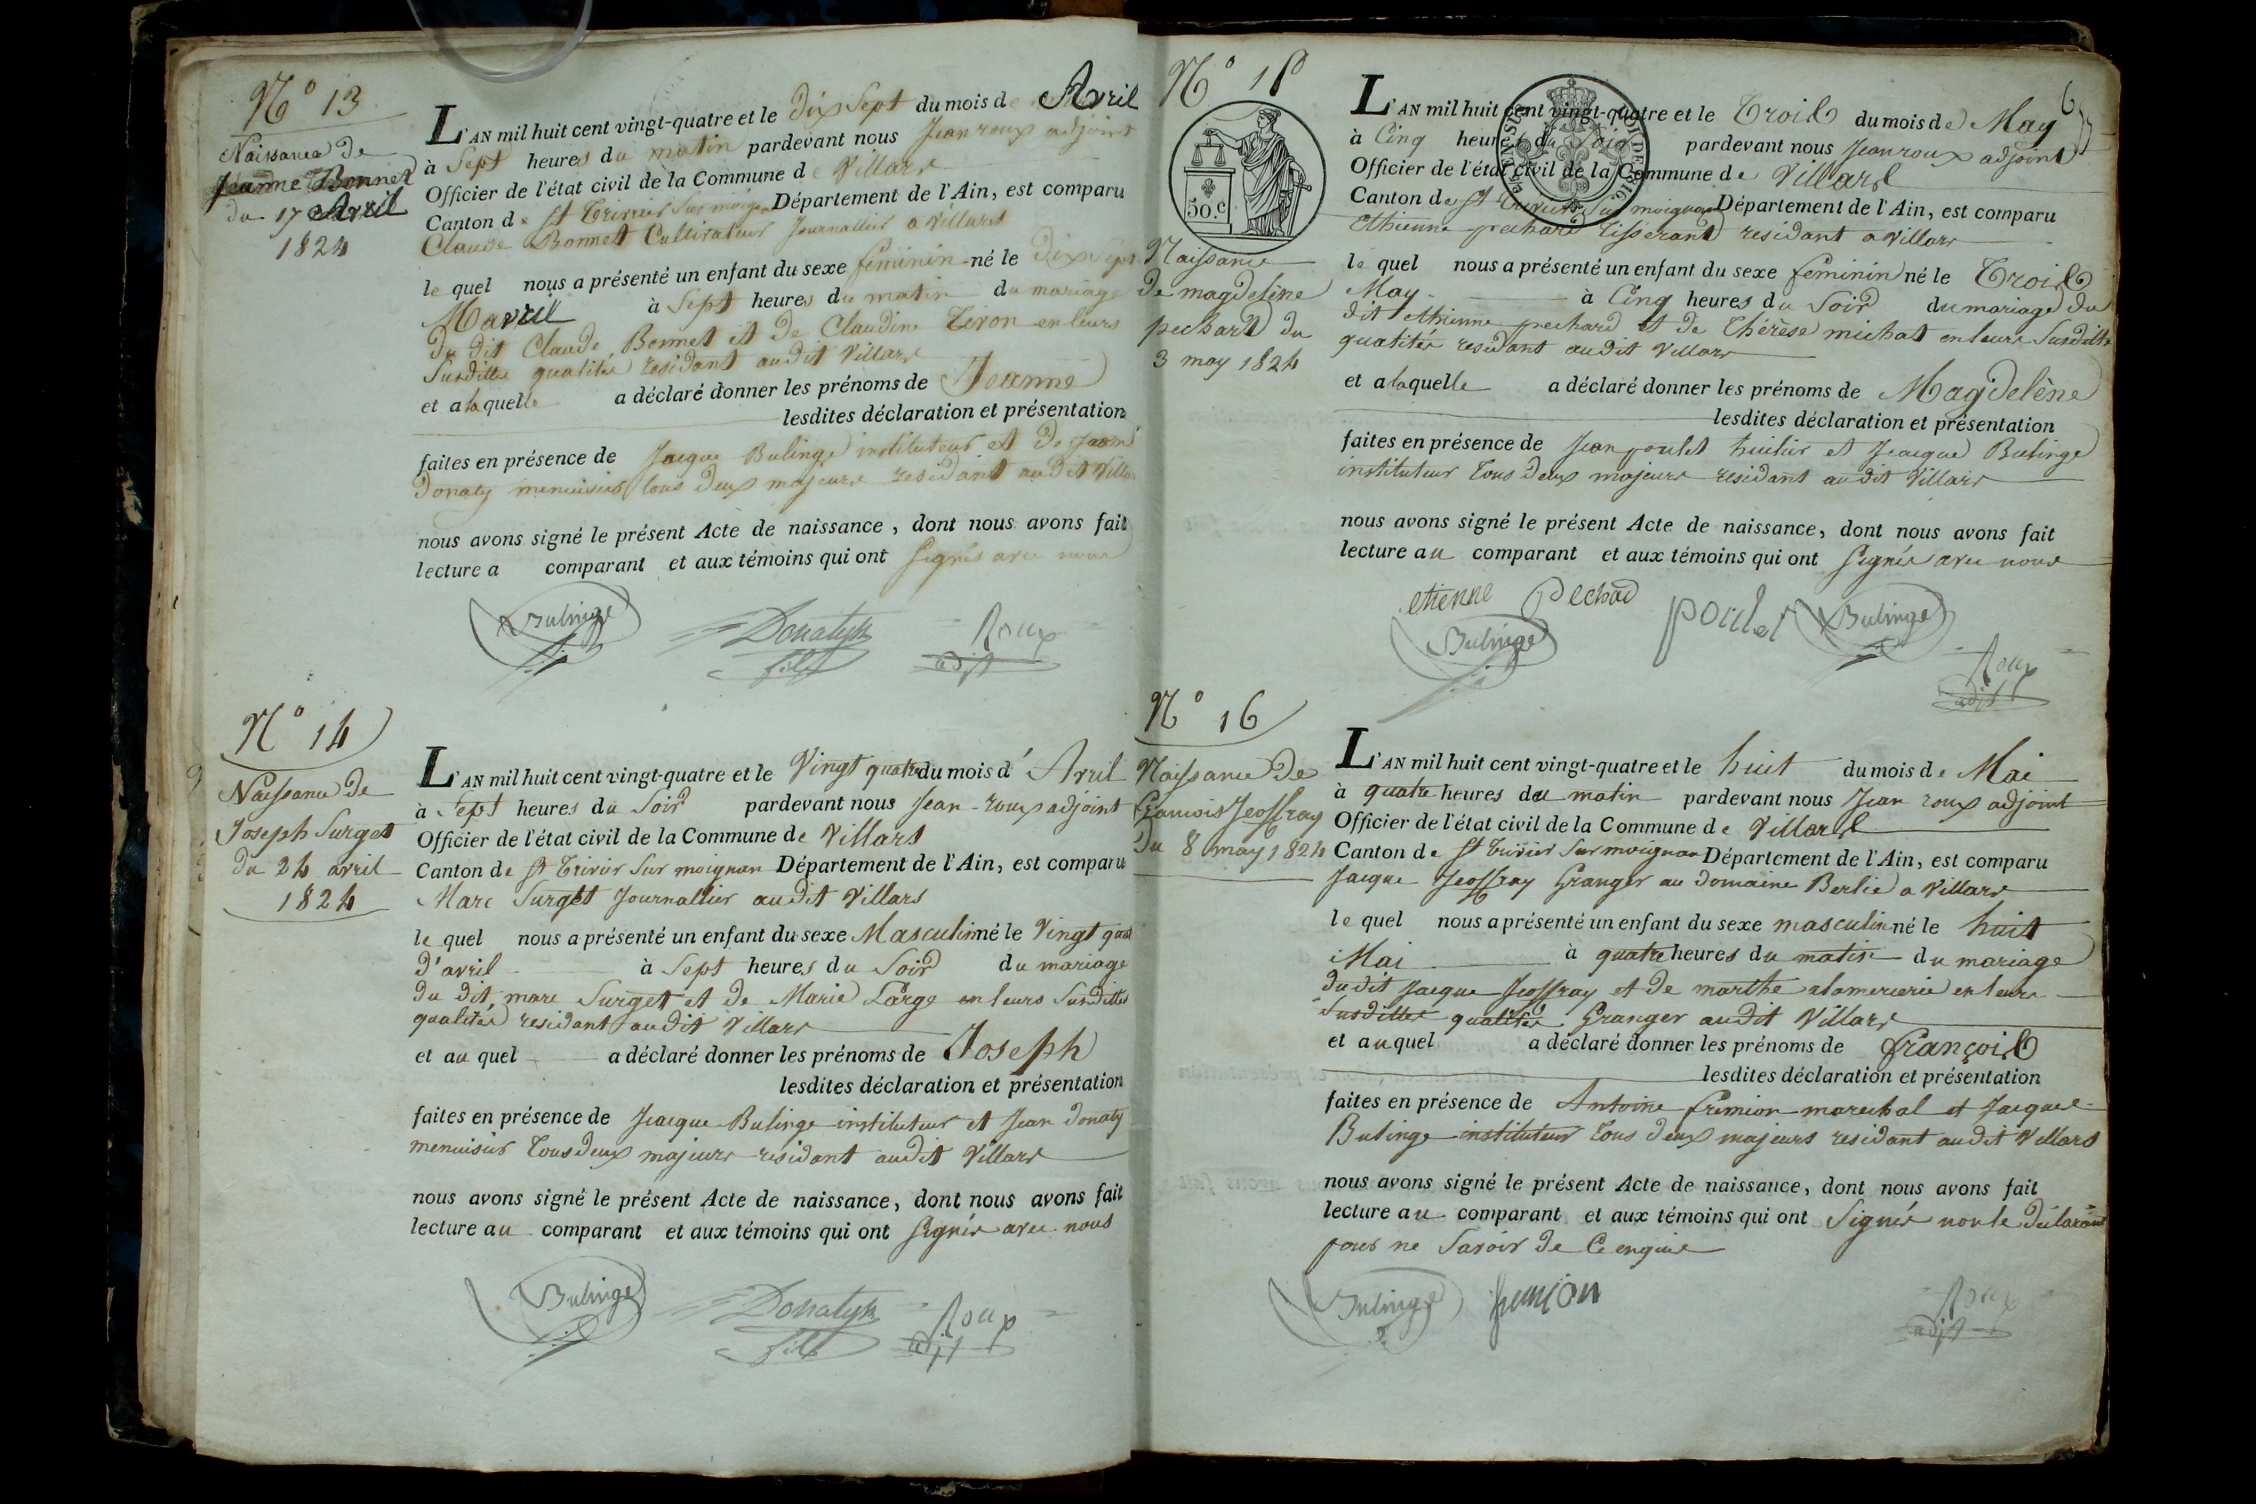 N° 13
Naissance de
Jeanne Bonnet
du 17 Avril
1824
L'AN mil huit cent vingt-quatre et le dix Sept du mois de Avril
à Sept heures du matin pardevant nous Jean roux adjoint
Officier de l'état civil de la Commune de Villars
Canton de St Trivier Sur moignan Département de l'Ain, est comparu
Claude Bonnet Cultivateur Journallier a Villars
le quel nous a présenté un enfant du sexe feminin né le dix Sept
avril à Sept heures du matin du mariage
du dit Claude Bonnet et de Claudine en leurs
Susdittes qualités residant audit Villars
et a laquelle a déclaré donner les prénoms de Jeanne
lesdites déclaration et présentation
faites en présence de Jacque Bulinge instituteur et de
Donaty menuisier tous deux majeurs residant audit Villars
nous avons signé le présent Acte de naissance, dont nous avons fait
lecture a comparant et aux témoins qui ont Signés avec nous
Bulinge Donatyk Roux
fils adjt
N° 14
Naissance de
Joseph Surget
du 24 avril
1824
L'AN mil huit cent vingt-quatre et le Vingt quatre du mois d' Avril
à Sept heures du Soir pardevant nous Jean roux adjoint
Officier de l'état civil de la Commune de Villars
Canton de St Trivier Sur moignan Département de l'Ain, est comparu
Marc Surget Journallier audit Villars
le quel nous a présenté un enfant du sexe Masculin né le Vingt quat
d'avril à Sept heures du Soir du mariage
du dit marc Surget et de Marie Large en leurs Susdittes
qualités residant audit Villars
et au quel a déclaré donner les prénoms de Joseph
lesdites déclaration et présentation
faites en présence de Jacque Bulinge instituteur et Jean Donaty
menuisier tous deux majeurs residant audit Villars
nous avons signé le présent Acte de naissance, dont nous avons fait
lecture au comparant et aux témoins qui ont Signés avec nous
Bulinge Donatyk Roux
fils adjt
6
N° 15
50.c
Naissance
de magdelène
pechard du
3 may 1824
L'AN mil huit cent vingt-quatre et le Trois du mois de May
à Cinq heures du Soir pardevant nous Jean roux adjoint
Officier de l'état civil de la Commune de Villars
Canton de St Trivier Sur moignan Département de l'Ain, est comparu
Ethienne pechard tisserand residant a Villars
le quel nous a présenté un enfant du sexe feminin né le Trois
May à Cinq heures du Soir du mariage du
dit ethienne pechard et de Thérèse michat en leurs Susdittes
qualités residant audit Villars
et a laquelle a déclaré donner les prénoms de Magdelène
lesdites déclaration et présentation
faites en présence de Jean poulet huilier et Jacque Bulinge
instituteur tous deux majeurs residant audit Villars
nous avons signé le présent Acte de naissance, dont nous avons fait
lecture au comparant et aux témoins qui ont Signés avec nous
etienne pechad poulet Bulinge
Bulinge
Roux
adjt
N° 16
Naissance de
francois Jeoffray
du 8 may 1824
L'AN mil huit cent vingt-quatre et le huit du mois de Mai
à quatre heures du matin pardevant nous Jean roux adjoint
Officier de l'état civil de la Commune de Villars
Canton de St Trivier Sur moignan Département de l'Ain, est comparu
Jacque Jeoffray Granger au domaine Berlie a Villars
le quel nous a présenté un enfant du sexe masculin né le huit
Mai à quatre heures du matin du mariage
dudit Jacque Jeoffray et de marthe alamercerie en leurs
Susdittes qualités Granger audit Villars
et au quel a déclaré donner les prénoms de françois
lesdites déclaration et présentation
faites en présence de Antoine fremion marechal et Jacque
Bulinge instituteur tous deux majeurs residant audit Villars
nous avons signé le présent Acte de naissance, dont nous avons fait
lecture au comparant et aux témoins qui ont Signés non le déclarant
pour ne Savoir de Ce enquis
Bulinge fremion Roux
adjt